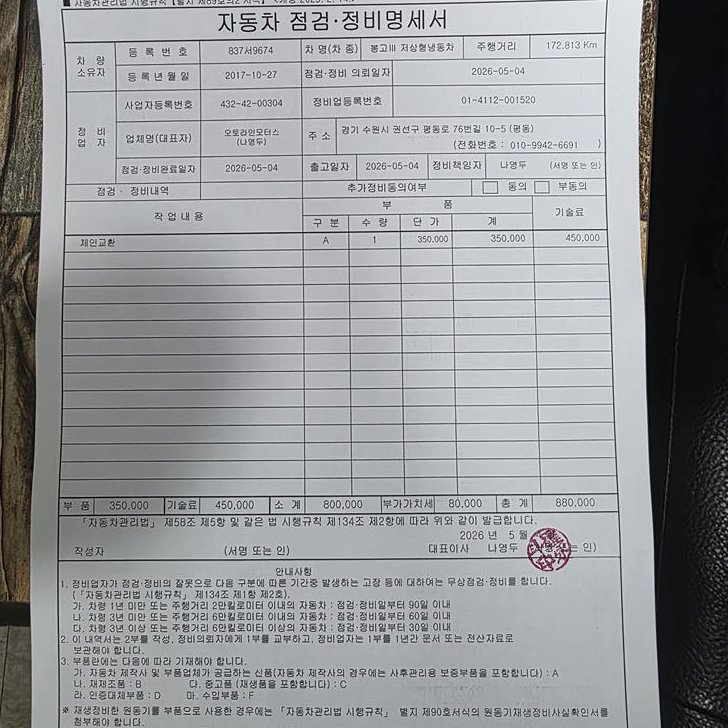 ■ 자동차관리법 시행규칙 [별지 제89호의2 서식]
자동차 점검·정비명세서
차 량 소유자
등 록 번 호 837서9674 차 명(차 종) 봉고Ⅲ 저상형냉동차 주행거리 172,813 Km
등 록 년 월 일 2017-10-27 점검·정비 의뢰일자 2026-05-04
정 비 업 자
사업자등록번호 432-42-00304 정비업등록번호 01-4112-001520
업체명(대표자) 오토라인모터스 (나영두) 주 소 경기 수원시 권선구 평동로 76번길 10-5 (평동)
(전화번호 : 010-9942-6691 )
점검·정비완료일자 2026-05-04 출고일자 2026-05-04 정비책임자 나영두 (서명 또는 인)
점검 · 정비내역 추가정비동의여부 동의 부동의
작 업 내 용 부 품 기술료
구 분 수 량 단 가 계
체인교환 A 1 350,000 350,000 450,000
부 품 350,000 기술료 450,000 소 계 800,000 부가가치세 80,000 총 계 880,000
「자동차관리법」 제58조 제5항 및 같은 법 시행규칙 제134조 제2항에 따라 위와 같이 발급합니다.
2026 년 5 월
작성자 (서명 또는 인) 대표이사 나영두 인)
안내사항
1. 정비업자가 점검·정비의 잘못으로 다음 구분에 따른 기간중 발생하는 고장 등에 대하여는 무상점검·정비를 합니다.
(「자동차관리법 시행규칙」 제134조 제1항 제2호)
가. 차령 1년 미만 또는 주행거리 2만킬로미터 이내의 자동차 : 점검·정비일부터 90일 이내
나. 차령 3년 미만 또는 주행거리 6만킬로미터 이내의 자동차 : 점검·정비일부터 60일 이내
다. 차령 3년 이상 또는 주행거리 6만킬로미터 이상의 자동차 : 점검·정비일부터 30일 이내
2. 이 내역서는 2부를 작성, 정비의뢰자에게 1부를 교부하고, 정비업자는 1부를 1년간 문서 또는 전산자료로
보관해야 합니다.
3. 부품란에는 다음에 따라 기재해야 합니다.
가. 자동차 제작사 및 부품업체가 공급하는 신품(자동차 제작사의 경우에는 사후관리용 보증부품을 포함합니다) : A
나. 재제조품 : B 다. 중고품 (재생품을 포함합니다) : C
라. 인증대체부품 : D 마. 수입부품 : F
※ 재생정비한 원동기를 부품으로 사용한 경우에는 「자동차관리법 시행규칙」 별지 제90호서식의 원동기재생정비사실확인서를
첨부해야 합니다.